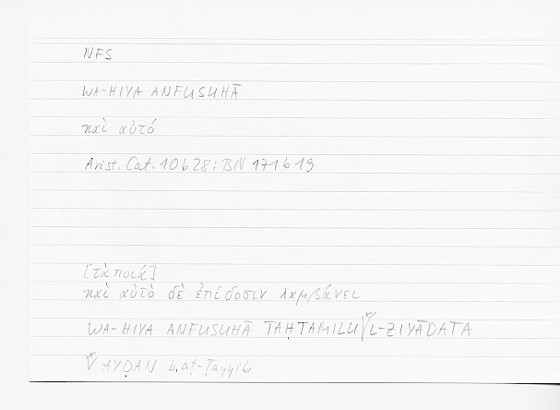 NFS
WA-HIYA ANFUSUHĀ
καὶ αὐτό
Arist. Cat. 10b28; BN 171b19
[τὰ ποιά]
καὶ αὐτὸ δὲ ἐπίδοσιν λαμβάνει
WA-HIYA ANFUSUHĀ TAḤTAMILU L-ZIYĀDATA
AYḌAN b.aṭ-Ṭayyib